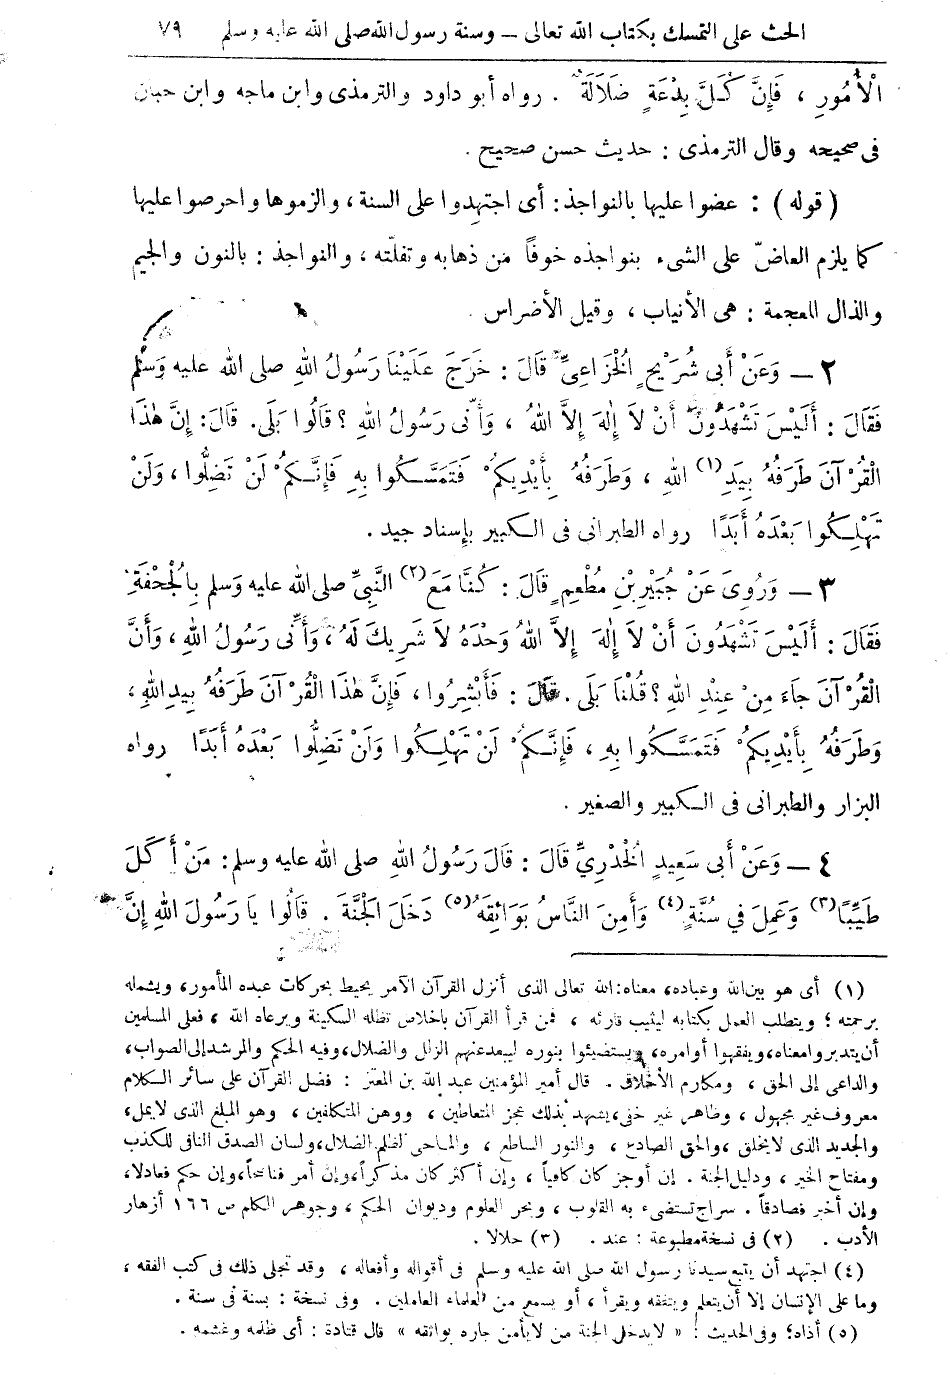 الحث على التمسك بكتاب الله تعالى – وسنة رسول الله صلى الله عليه وسلم ٧٩
الْأُمُورِ ، فَإِنَّ كُلَّ بِدْعَةٍ ضَلَالَةٌ . رواه أبو داود والترمذى وابن ماجه وابن حبان
فى صحيحه وقال الترمذى : حديث حسن صحيح .
( قوله ) : عضوا عليها بالنواجذ : أى اجتهدوا على السنة ، والزموها واحرصوا عليها
كما يلزم العاضّ على الشىء بنواجذه خوفاً من ذهابه وتفلّته ، والنواجذ : بالنون والجيم
والذال المعجمة : هى الأنياب ، وقيل الأضراس .
٢ – وَعَنْ أَبِى شُرَيْحٍ الْخُزَاعِىِّ قَالَ : خَرَجَ عَلَيْنَا رَسُولُ اللهِ صلى الله عليه وسلم
فَقَالَ : أَلَيْسَ تَشْهَدُونَ أَنْ لاَ إِلٰهَ إِلاَّ اللهُ ، وَأَنِّى رَسُولُ اللهِ ؟ قَالُوا بَلَى. قَالَ: إِنَّ هٰذَا
الْقُرْآنَ طَرَفُهُ بِيَدِ (١) اللهِ ، وَطَرَفُهُ بِأَيْدِيكُمْ فَتَمَسَّكُوا بِهِ فَإِنَّكُمْ لَنْ تَضِلُّوا ، وَلَنْ
تَهْلِكُوا بَعْدَهُ أَبَدًا رواه الطبرانى فى الكبير بإسناد جيد .
٣ – وَرُوِىَ عَنْ جُبَيْرِ بْنِ مُطْعِمٍ قَالَ : كُنَّا مَعَ (٢) النَّبِىِّ صلى الله عليه وسلم بِالْجُحْفَةِ
فَقَالَ : أَلَيْسَ تَشْهَدُونَ أَنْ لاَ إِلٰهَ إِلاَّ اللهُ وَحْدَهُ لاَ شَرِيكَ لَهُ ، وَأَنِّى رَسُولُ اللهِ ، وَأَنَّ
الْقُرْآنَ جَاءَ مِنْ عِنْدِ اللهِ ؟ قُلْنَا بَلَى . قَالَ : فَأَبْشِرُوا ، فَإِنَّ هٰذَا الْقُرْآنَ طَرَفُهُ بِيَدِ اللهِ ،
وَطَرَفُهُ بِأَيْدِيكُمْ فَتَمَسَّكُوا بِهِ ، فَإِنَّكُمْ لَنْ تَهْلِكُوا وَلَنْ تَضِلُّوا بَعْدَهُ أَبَدًا رواه
البزار والطبرانى فى الكبير والصغير .
٤ – وَعَنْ أَبِى سَعِيدٍ الْخُدْرِيِّ قَالَ : قَالَ رَسُولُ اللهِ صلى الله عليه وسلم: مَنْ أَكَلَ
طَيِّبًا (٣) وَعَمِلَ فِي سُنَّةٍ (٤) وَأَمِنَ النَّاسُ بَوَائِقَهُ (٥) دَخَلَ الْجَنَّةَ . قَالُوا يَا رَسُولَ اللهِ إِنَّ
(١) أى هو بين الله وعباده، معناه: الله تعالى الذى أنزل القرآن الآمر يحيط بحركات عبده المأمور، ويشمله
برحمته ؛ ويتطلب العمل بكتابه ليثيب قارئه ، فمن قرأ القرآن بإخلاص تظله السكينة ويرعاه الله ، فعلى المسلمين
أن يتدبروا معناه، ويفقهوا أوامره، ويستضيئوا بنوره ليبعد عنهم الزلل والضلال، وفيه الحكم والمرشد إلى الصواب،
والداعى إلى الحق ، ومكارم الأخلاق . قال أمير المؤمنين عبد الله بن المعتز : فضل القرآن على سائر الكلام
معروف غير مجهول ، وظاهر غير خفى، يشهد بذلك عجز المتعاطين ، ووهن المتكلفين ، وهو المبلغ الذى لا يمل،
والجديد الذى لا يخلق ، والحق الصادع ، والنور الساطع ، والماحى لظلم الضلال، ولسان الصدق النافى للكذب
ومفتاح الخير ، ودليل الجنة . إن أوجز كان كافياً ، وإن أكثر كان مذكراً، وإن أمر فناصحاً، وإن حكم فعادلا،
وإن أخبر فصادقاً . سراج تستضىء به القلوب ، وبحر العلوم وديوان الحكم ، وجوهر الكلم ص ١٦٦ أزهار
الأدب . (٢) فى نسخة مطبوعة : عند . (٣) حلالا .
(٤) اجتهد أن يتبع سيدنا رسول الله صلى الله عليه وسلم فى أقواله وأفعاله ، وقد تجلى ذلك فى كتب الفقه ،
وما على الإنسان إلا أن يتعلم ويتفقه ويقرأ ، أو يسمع من العلماء العاملين . وفى نسخة : بسنة فى سنة .
(٥) أذاه؛ وفى الحديث : « لا يدخل الجنة من لا يأمن جاره بوائقه » قال قتادة : أى ظلمه وغشمه .